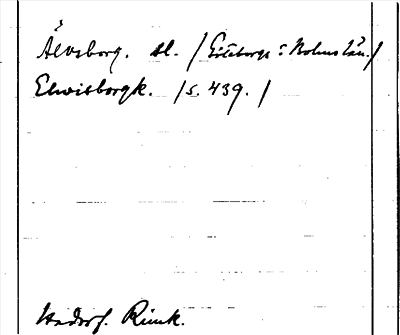 Älvsborg. sl. / Göteborgs o Bohus län. /
Elwisborgk. / s. 439. /
Hadorf. Rimk.